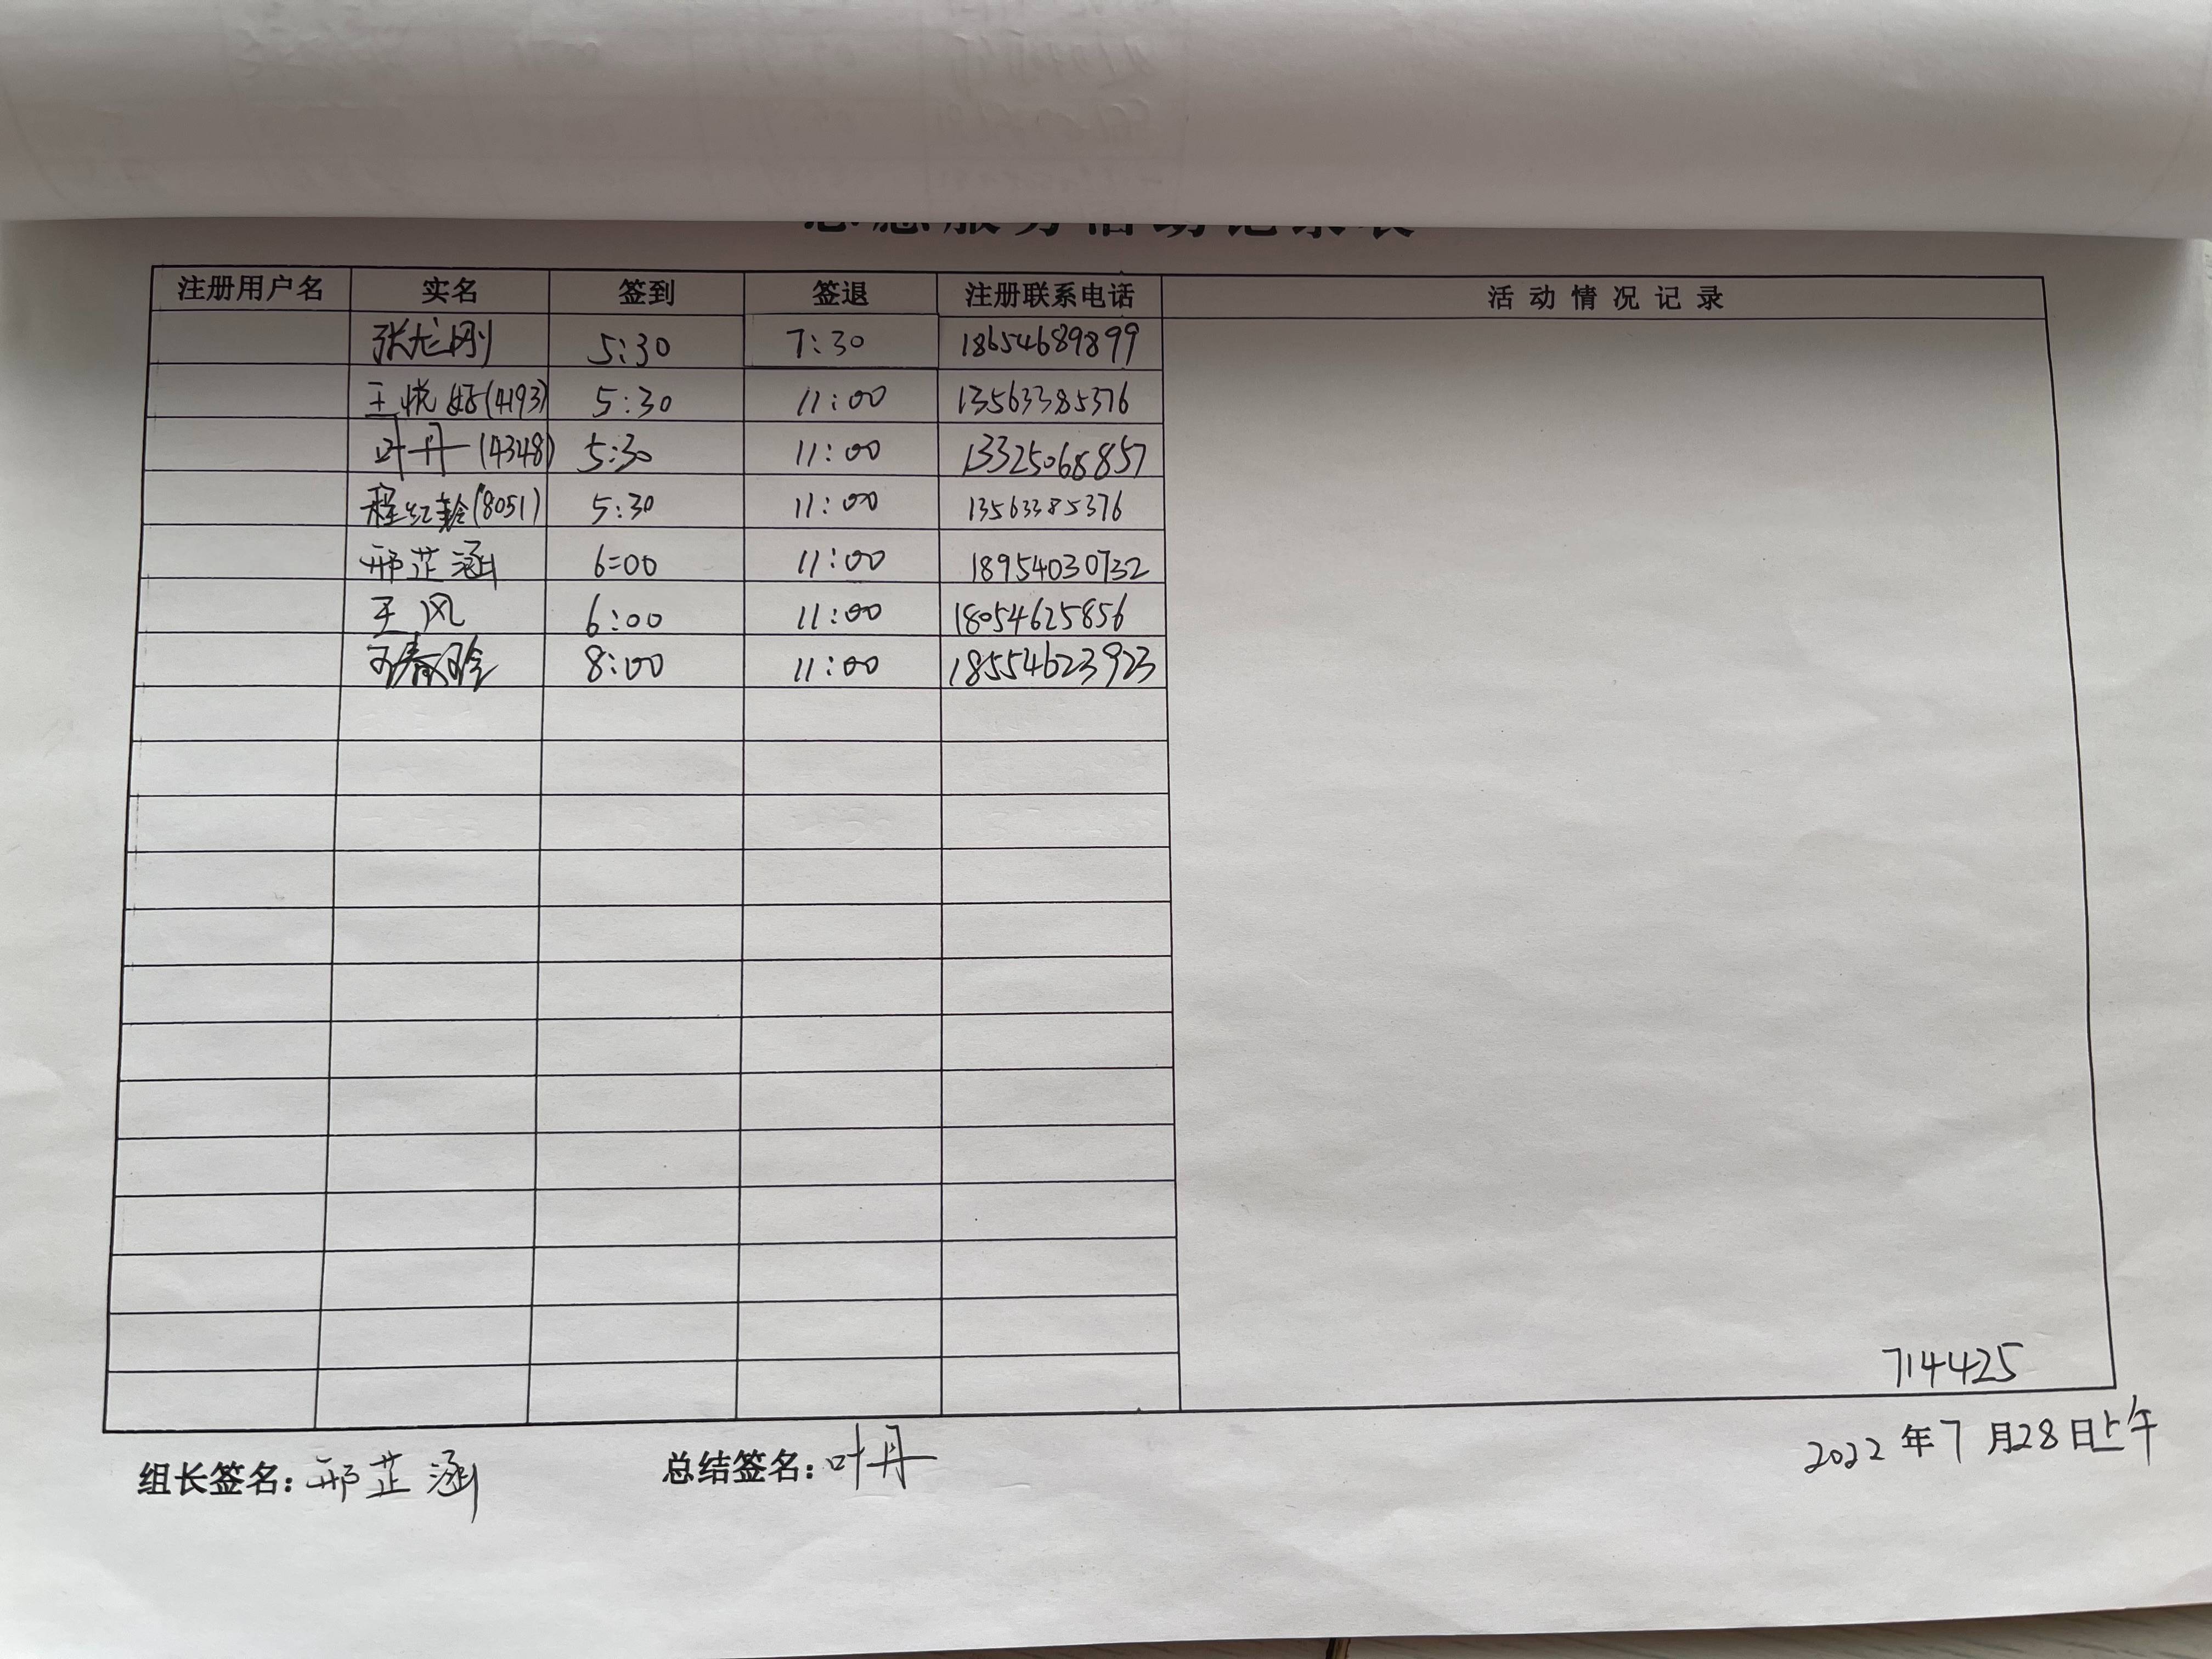 志愿服务活动记录表
注册用户名 实名 签到 签退 注册联系电话 活动情况记录
张龙刚 5:30 7:30 18654689899
王悦好(4193) 5:30 11:00 13563385376
叶丹(4348) 5:30 11:00 13325068857
程红(8051) 5:30 11:00 13563385376
邢芷涵 6:00 11:00 18954030732
王风 6:00 11:00 18054625856
8:00 11:00 18554623923
714425
组长签名：邢芷涵 总结签名：叶丹 2022年7月28日上午